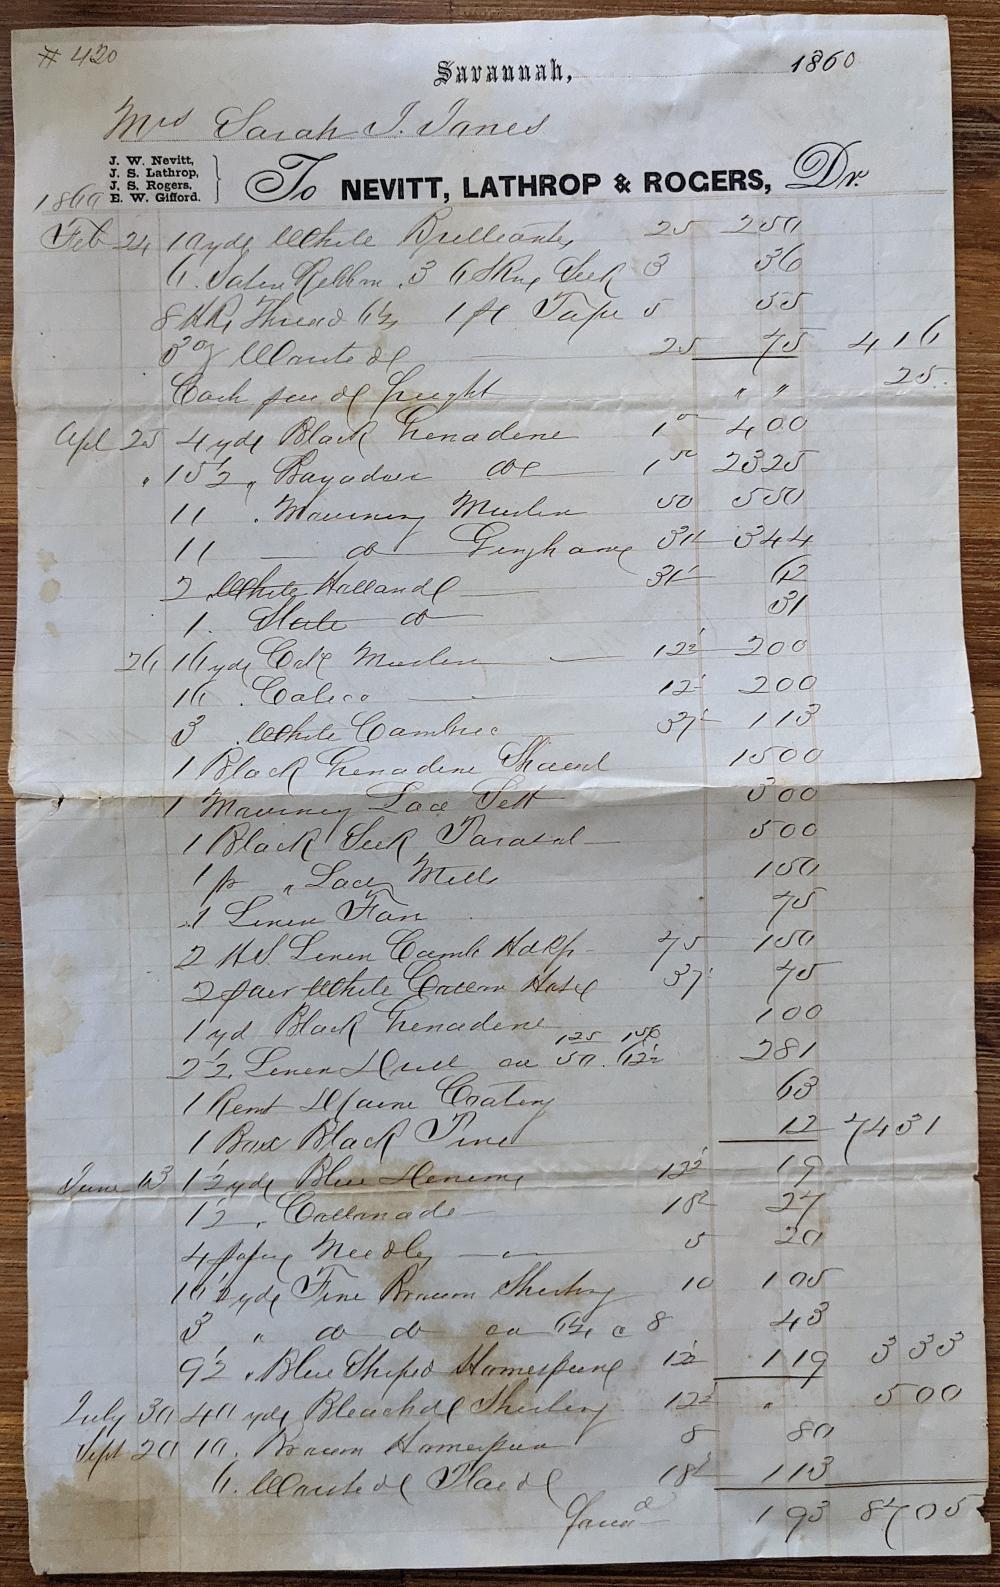 # 420
Savannah, 1860
Mrs Sarah J. Janes
J. W. Nevitt,
J. S. Lathrop,
J. S. Rogers,
E. W. Gifford.
To NEVITT, LATHROP & ROGERS, Dr.
1860
Feb 24 10 yds White Brilliante 25 250
6 . Satin Ribbon .3 6 Skns Silk 3 36
8 Hks Thread 6¼ 1 pc Tape 5 55
3 oz Worsted 25 75 416
Cash paid freight " " 25
Apl 25 4 yds Black Grenadine 1 00 400
" 15½ " Bayadere do 1 50 2325
11 . Mourning Muslin 50 550
11 — do — Ginghams 31¼ 344
2 White Holland 31¼ 62
1 . Slate do 31
26 16 yds Cold Muslin 12½ 200
16 . Calico 12½ 200
3 . White Cambric 37½ 113
1 Black Grenadine Shawl 1500
1 Mourning Lace Sett 300
1 Black Silk Parasol 500
1 pr " Lace Mitts 150
1 Linen Fan 75
2 H.S. Linen Camb Hdkfs 75 150
2 pair White Cotton Hose 37½ 75
1 yd Black Grenadine 100
2½ . Linen Drill 125 156
50 . 62½ 281
1 Remt 63
1 Box Black Pins 12 7431
June 13 1½ yds Blue Denims 12½ 19
1½ . Cottonade 18 27
4 papers Needles 5 20
10½ yds Fine Brown Shirting 10 105
3 " do do 6¼ 8 43
9½ . Blue Striped Homespuns 12½ 119 333
July 30 40 yds Bleached Shirting 12½ " 500
Sept 20 10 . Brown Homespun 8 80
6 . Worsted Plaid 18¾ 113
193 8705